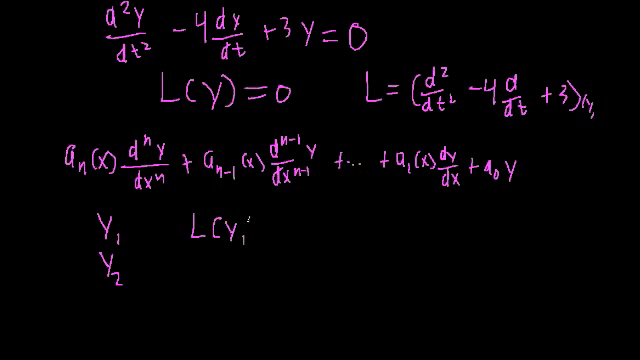 d²y/dt² - 4 dy/dt + 3y = 0
L(y) = 0 L = (d²/dt² - 4 d/dt + 3)
aₙ(x) dⁿy/dxⁿ + aₙ₋₁(x) dⁿ⁻¹y/dxⁿ⁻¹ + ... + a₁(x) dy/dx + a₀ y
y₁ L(y₁
y₂